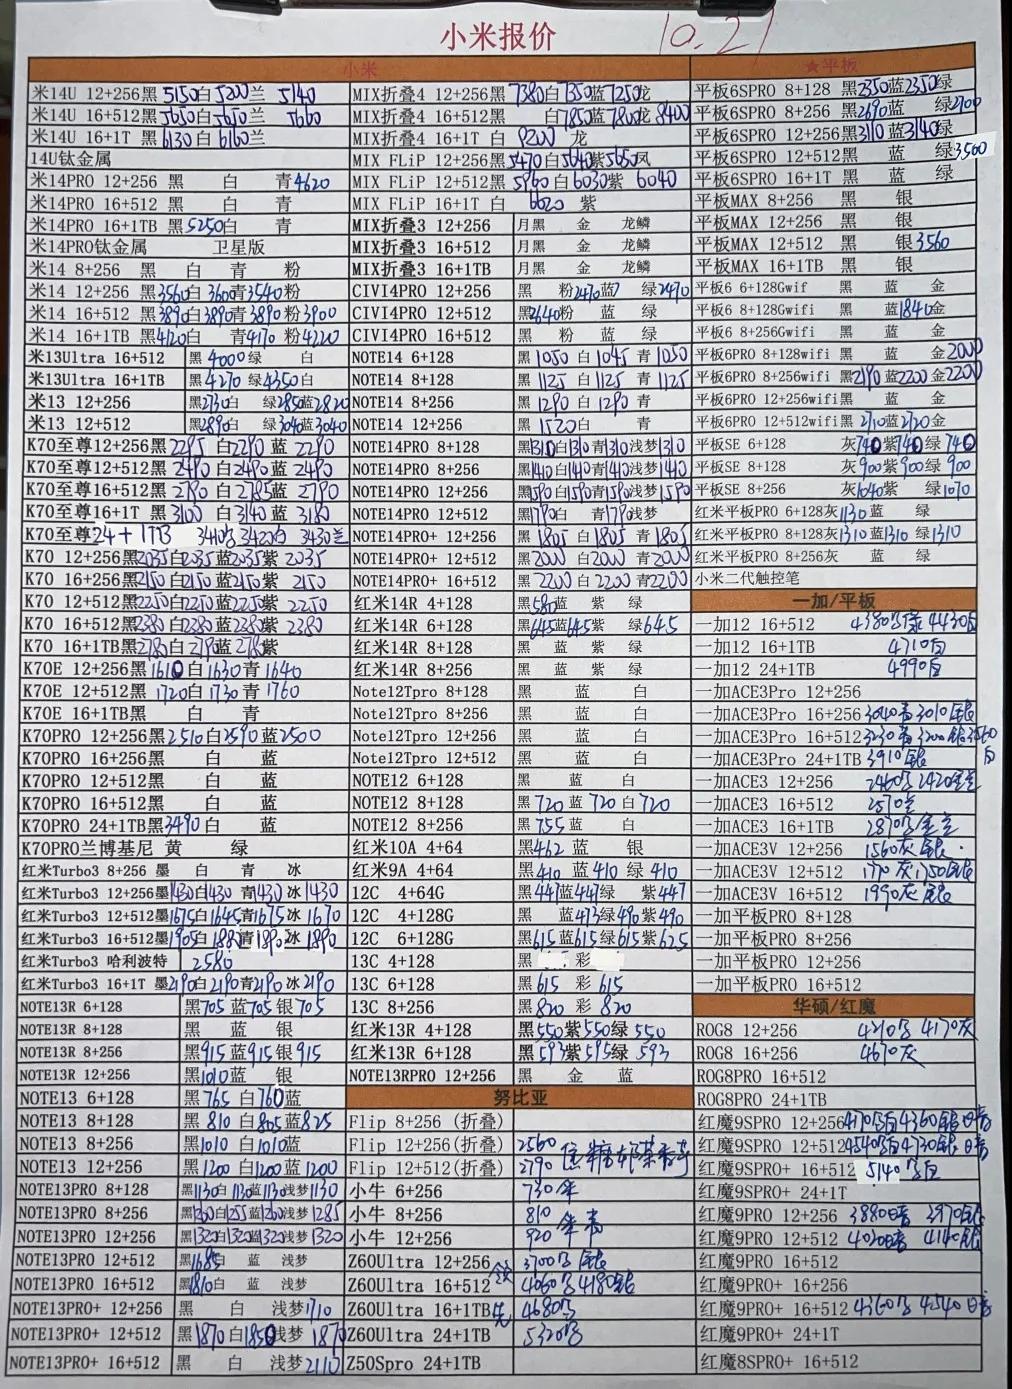 小米报价 10.27
小米
米14U 12+256黑5150白5200兰 5140
米14U 16+512黑5650白5670兰 5660
米14U 16+1T 黑6130白6160兰
14U钛金属
米14PRO 12+256 黑 白 青4620
米14PRO 16+512 黑 白 青
米14PRO 16+1TB 黑5250白 青
米14PRO钛金属 卫星版
米14 8+256 黑 白 青 粉
米14 12+256 黑3560白3600青3540粉
米14 16+512 黑3890白3890青3890粉3900
米14 16+1TB 黑4120白 青4170粉4220
米13Ultra 16+512 黑4000绿 白
米13Ultra 16+1TB 黑4270绿4350白
米13 12+256 黑2730白 绿2850蓝2820
米13 12+512 黑2890白 绿3040蓝3040
K70至尊12+256黑2295 白2290蓝 2290
K70至尊12+512黑2490白2490蓝 2490
K70至尊16+512黑2790白2785蓝 2790
K70至尊16+1T黑3100白3140蓝 3180
K70至尊24+1TB 3410 3420白 3430兰
K70 12+256黑2035白2035蓝2035紫2035
K70 16+256黑2150白2150蓝2150紫 2150
K70 12+512黑2250白2250蓝2250紫 2250
K70 16+512黑2380白2380蓝2380紫 2380
K70 16+1TB黑2780白2790蓝2785紫
K70E 12+256黑1610白1630青1640
K70E 12+512黑1720白1730青1760
K70E 16+1TB黑 白 青
K70PRO 12+256黑2510白2590蓝2500
K70PRO 16+256黑 白 蓝
K70PRO 12+512黑 白 蓝
K70PRO 16+512黑 白 蓝
K70PRO 24+1TB黑3490白 蓝
K70PRO兰博基尼 黄 绿
红米Turbo3 8+256 墨 白 青 冰
红米Turbo3 12+256墨1430白1430青1430冰1430
红米Turbo3 12+512墨1675白1645青1675冰1670
红米Turbo3 16+512墨1905白1880青1890冰1890
红米Turbo3 哈利波特 2580
红米Turbo3 16+1T 墨2190白2190青2190冰2190
NOTE13R 6+128 黑705蓝705银705
NOTE13R 8+128 黑 蓝 银
NOTE13R 8+256 黑915蓝915银915
NOTE13R 12+256 黑1010蓝 银
NOTE13 6+128 黑765 白760蓝
NOTE13 8+128 黑 810 白805蓝825
NOTE13 8+256 黑1010 白1010蓝
NOTE13 12+256 黑1200白1200蓝1200
NOTE13PRO 8+128 黑1130白1130蓝1130浅梦1130
NOTE13PRO 8+256 黑1260白1255蓝1260浅梦1285
NOTE13PRO 12+256 黑1320白1320蓝1320浅梦1320
NOTE13PRO 12+512 黑1685白 蓝 浅梦
NOTE13PRO 16+512 黑1810白 蓝 浅梦
NOTE13PRO+ 12+256 黑 白 浅梦1710
NOTE13PRO+ 12+512 黑1870白1850浅梦1870
NOTE13PRO+ 16+512 黑 白 浅梦2110
MIX折叠4 12+256黑7380白7350蓝7250龙
MIX折叠4 16+512黑 白7850蓝7800龙 8400
MIX折叠4 16+1T 白 8200 龙
MIX FLiP 12+256黑5470白5640紫5650凤
MIX FLiP 12+512黑5960白6030紫 6040
MIX FLiP 16+1T 白 6620 紫
MIX折叠3 12+256 月黑 金 龙鳞
MIX折叠3 16+512 月黑 金 龙鳞
MIX折叠3 16+1TB 月黑 金 龙鳞
CIVI4PRO 12+256 黑 粉2470蓝 绿2490
CIVI4PRO 12+512 黑2640粉 蓝 绿
CIVI4PRO 16+512 黑 粉 蓝 绿
NOTE14 6+128 黑1050 白1045 青1050
NOTE14 8+128 黑1125 白1125 青1125
NOTE14 8+256 黑1290 白1290 青
NOTE14 12+256 黑1520白 青
NOTE14PRO 8+128 黑1310白1310青1310浅梦1310
NOTE14PRO 8+256 黑1410白1410青1410浅梦1410
NOTE14PRO 12+256 黑1590白1590青1590浅梦1590
NOTE14PRO 12+512 黑1790白 青1790浅梦
NOTE14PRO+ 12+256 黑1805 白1805 青1805
NOTE14PRO+ 12+512 黑2000 白2000 青2000
NOTE14PRO+ 16+512 黑2200 白2200 青2200
红米14R 4+128 黑580蓝 紫 绿
红米14R 6+128 黑645蓝645紫 绿645
红米14R 8+128 黑 蓝 紫 绿
红米14R 8+256 黑 蓝 紫 绿
Note12Tpro 8+128 黑 蓝 白
Note12Tpro 8+256 黑 蓝 白
Note12Tpro 12+256 黑 蓝 白
Note12Tpro 12+512 黑 蓝 白
NOTE12 6+128 黑 蓝 白
NOTE12 8+128 黑720 蓝720白720
NOTE12 8+256 黑755 蓝 白
红米10A 4+64 黑462 蓝 银
红米9A 4+64 黑410 蓝410 绿410
12C 4+64G 黑447蓝447绿 紫447
12C 4+128G 黑 蓝473绿490紫490
12C 6+128G 黑615蓝615绿615紫625
13C 4+128 黑 彩
13C 6+128 黑615 彩615
13C 8+256 黑820 彩820
红米13R 4+128 黑550紫550绿550
红米13R 6+128 黑593紫595绿593
NOTE13RPRO 12+256 黑 金 蓝
努比亚
Flip 8+256 (折叠)
Flip 12+256(折叠) 2560
Flip 12+512(折叠) 2790
小牛 6+256 730
小牛 8+256 810
小牛 12+256 920
Z60Ultra 12+256 3700 银
Z60Ultra 16+512 4060 4180银
Z60Ultra 16+1TB 4680
Z60Ultra 24+1TB 5320
Z50Spro 24+1TB
★平板
平板6SPRO 8+128 黑2350蓝2350绿
平板6SPRO 8+256 黑2690蓝 绿2700
平板6SPRO 12+256黑3110蓝3140绿
平板6SPRO 12+512黑 蓝 绿3560
平板6SPRO 16+1T 黑 蓝 绿
平板MAX 8+256 黑 银
平板MAX 12+256 黑 银
平板MAX 12+512 黑 银3560
平板MAX 16+1TB 黑 银
平板6 6+128Gwif 黑 蓝 金
平板6 8+128Gwifi 黑 蓝1840金
平板6 8+256Gwifi 黑 蓝 金
平板6PRO 8+128wifi 黑 蓝 金2000
平板6PRO 8+256wifi 黑2190蓝2200金2200
平板6PRO 12+256wifi黑 蓝 金
平板6PRO 12+512wifi黑2710蓝2720金
平板SE 6+128 灰740紫740绿740
平板SE 8+128 灰900紫900绿 900
平板SE 8+256 灰1040紫 绿1070
红米平板PRO 6+128灰1130蓝 绿
红米平板PRO 8+128灰1310蓝1310 绿1310
红米平板PRO 8+256灰 蓝 绿
小米二代触控笔
一加/平板
一加12 16+512 4380 4430白
一加12 16+1TB 4710白
一加12 24+1TB 4990白
一加ACE3Pro 12+256
一加ACE3Pro 16+256 3040青3010银
一加ACE3Pro 16+512 3230青3200银3560白
一加ACE3Pro 24+1TB 3910银
一加ACE3 12+256 2460 2420金
一加ACE3 16+512 2570
一加ACE3 16+1TB 2870
一加ACE3V 12+256 1560灰银
一加ACE3V 12+512 1770灰1750银
一加ACE3V 16+512 1990灰银
一加平板PRO 8+128
一加平板PRO 8+256
一加平板PRO 12+256
一加平板PRO 16+512
华硕/红魔
ROG8 12+256 4210 4170灰
ROG8 16+256 4670灰
ROG8PRO 16+512
ROG8PRO 24+1TB
红魔9SPRO 12+256 4170 4360银
红魔9SPRO 12+512 4540 4730银
红魔9SPRO+ 16+512 5140
红魔9SPRO+ 24+1T
红魔9PRO 12+256 3880 3970银
红魔9PRO 12+512 4020 4140银
红魔9PRO 16+512
红魔9PRO+ 16+256
红魔9PRO+ 16+512 4360 4540
红魔9PRO+ 24+1T
红魔8SPRO+ 16+512